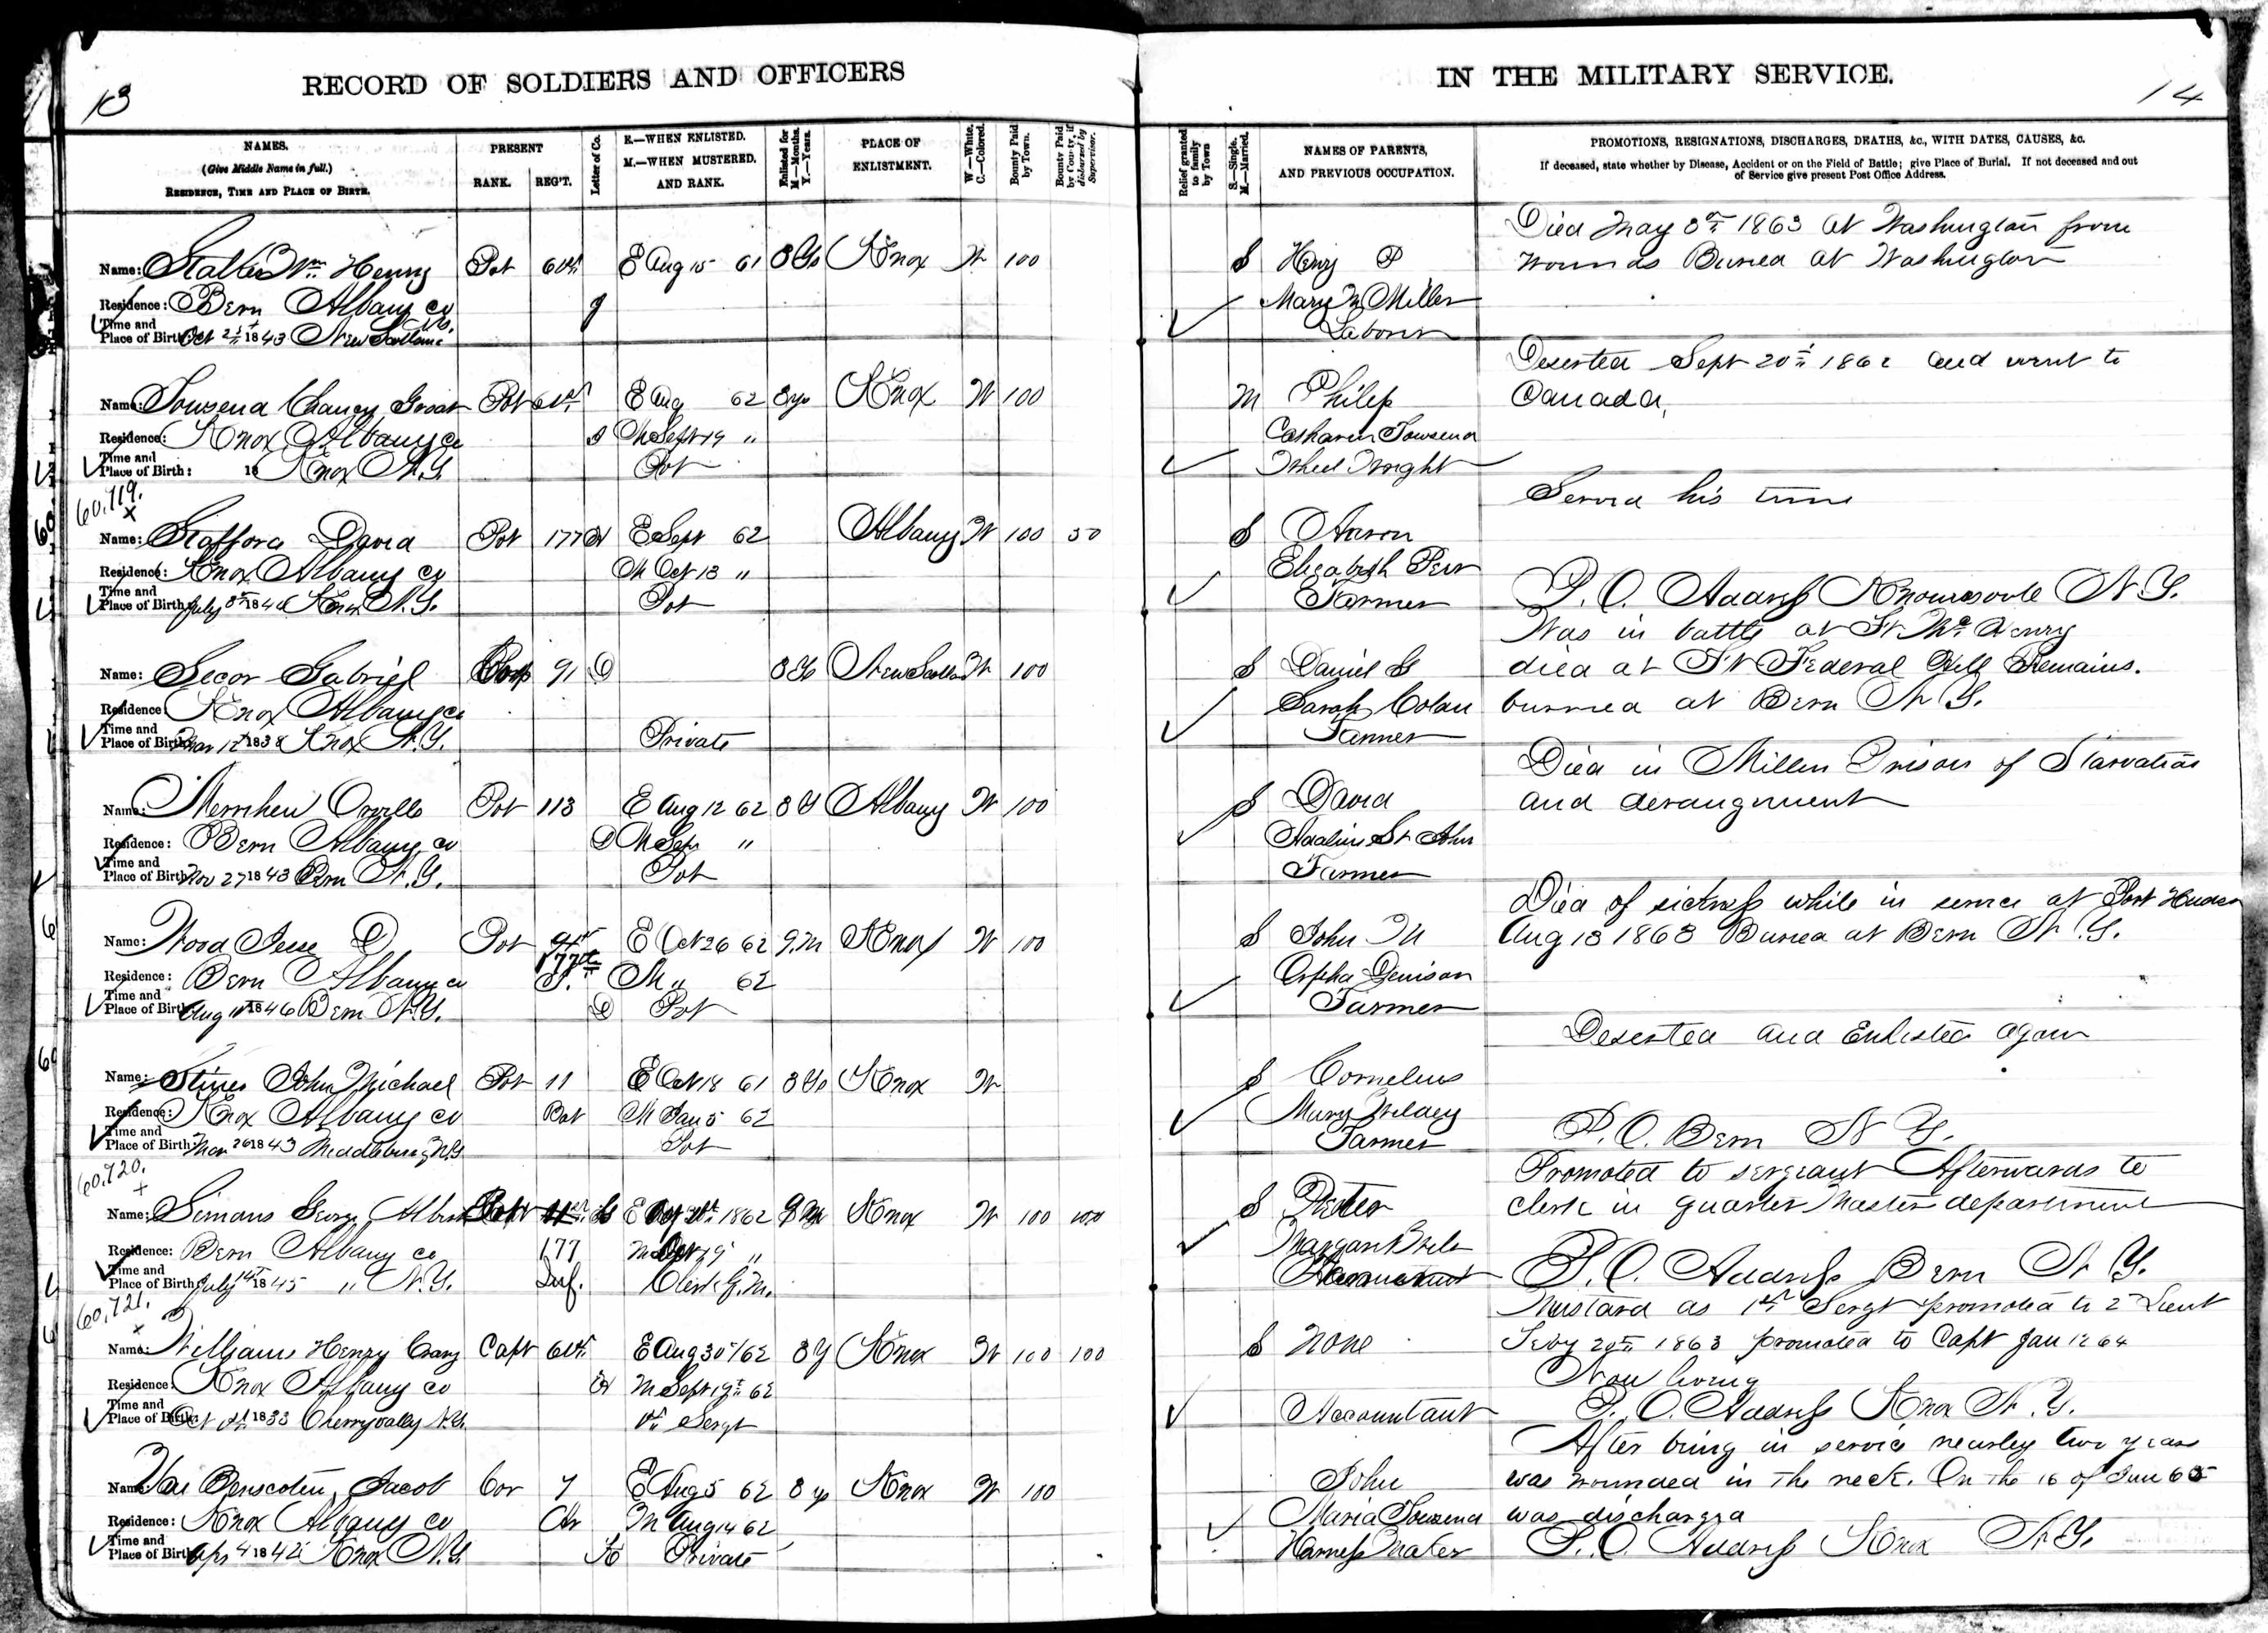 13
RECORD OF SOLDIERS AND OFFICERS
NAMES.
(Give Middle Name in full.)
RESIDENCE, TIME AND PLACE OF BIRTH.
PRESENT
RANK. REG'T.
Letter of Co.
E.—WHEN ENLISTED.
M.—WHEN MUSTERED.
AND RANK.
Enlisted for
M.—Months.
Y.—Years.
PLACE OF
ENLISTMENT.
W.—White.
C.—Colored.
Bounty Paid
by Town.
Bounty Paid
by County, if
disbursed by
Supervisor.
Name: Wm Henry Pvt E Aug 15 61 3 Ys Knox W 100
Residence: Bern Albany Co
Time and
Place of Birth: Oct 1843 New Scotland
Name: Chancy Pvt E Aug 62 3 ys Knox W 100
Residence: Knox Albany Co M Sept 19 "
Time and
Place of Birth: 18 Knox N.Y. Pvt
60,719.
x
Name: Stafford David Pvt 177 E Sept 62 Albany W 100 50
Residence: Knox Albany Co M Oct 13 "
Time and
Place of Birth: July Knox N.Y. Pvt
Name: Secor Gabriel Corp 91 D 3 Ys New Scotland W 100
Residence: Knox Albany Co
Time and
Place of Birth: 1838 Knox N.Y. Private
Name: Orville Pvt 113 E Aug 12 62 3 Y Albany W 100
Residence: Bern Albany Co D M Sep "
Time and
Place of Birth: Nov 27 1843 Bern N.Y. Pvt
Name: Wood Jesse D Pvt E Oct 26 62 9 M Knox W 100
Residence: Bern Albany Co 177 M " 62
Time and
Place of Birth: Aug 1846 Bern N.Y. D Pvt
Name: John Michael Pvt 11 E Oct 18 61 3 Ys Knox W
Residence: Knox Albany Co Bat M Jan 5 62
Time and
Place of Birth: Mar 26 1843 Middleburg N.Y. Pvt
60,720.
+
Name: Simons George Albert 1862 9 M Knox W 100
Residence: Bern Albany Co 177 M
Time and
Place of Birth: July 1845 " N.Y. Inf. Clerk Q.M.
60,721.
x
Name: Williams Henry Capt E Aug 30 /62 3 Y Knox W 100 100
Residence: Knox Albany Co M Sept 19 62
Time and
Place of Birth: Oct 1833 Cherryvalley N.Y. 1st Sergt
Name: Van Benscoten Jacob Cor 7 E Aug 5 62 3 ys Knox W 100
Residence: Knox Albany Co M Aug 14 62
Time and
Place of Birth: Apr 4 1842 Knox N.Y. K Private
IN THE MILITARY SERVICE.
14
Relief granted
to family
by Town
S.—Single.
M.—Married.
NAMES OF PARENTS,
AND PREVIOUS OCCUPATION.
PROMOTIONS, RESIGNATIONS, DISCHARGES, DEATHS, &c., WITH DATES, CAUSES, &c.
If deceased, state whether by Disease, Accident or on the Field of Battle; give Place of Burial. If not deceased and out
of Service give present Post Office Address.
Died May 1863 at Washington from
S Henry P wounds Buried at Washington
Mary M Miller
Laborer
Deserted Sept 20th 1862 and went to
M Philip Canada,
Catharine Townsend
Wheel Wright
Served his time
S Aaron
Elizabeth
Farmer P. O. Address Knowersville N.Y.
Was in battle at Ft McHenry
S Daniel G died at Ft Federal Hill Remains
Sarah burried at Bern N.Y.
Farmer
Died in Millen Prison of Starvation
S David and derangement
Adaline St John
Farmer
Died of sickness while in service at Port Hudson
S John M Aug 13 1863 Buried at Bern N.Y.
Orpha Denison
Farmer
Deserted and Enlisted again
S Cornelius
Mary
Farmer P. O. Bern N Y.
Promoted to sergeant Afterwards to
S Peter clerk in quarter Master department
Margaret
P. O. Address Bern N.Y.
Mustard as 1st Sergt promoted to 2d Lieut
S None Feby 20th 1863 promoted to Capt Jan 12 64
Now living
Accountant P. O. Address Knox N.Y.
After being in service nearley two years
John was wounded in the neck. On the 16 of June 65
Maria Townsend was discharged
Harness Maker P. O. Address Knox N.Y.